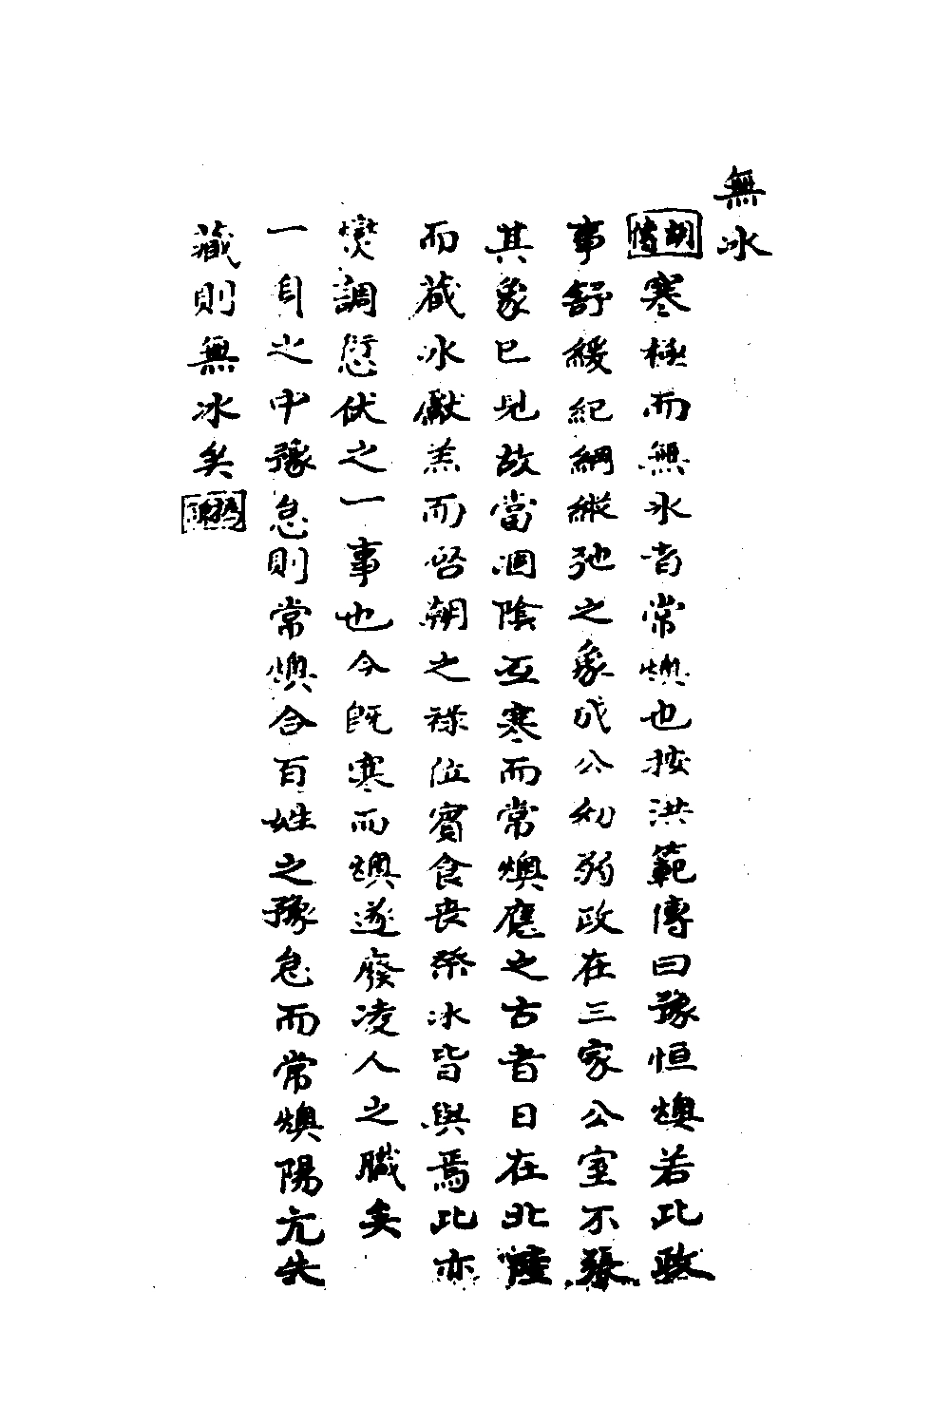 無冰
胡 寒極而無氷者常燠也按洪範傳曰豫恒燠若此政
事舒緩紀綱縱弛之象成公幼弱政在三家公室不張
其象已見故當涸陰互寒而常燠應之古者日在北陸
而藏冰獻羔而啓朝之祿位賓食喪祭冰皆與焉此亦
燮調愆伏之一事也今既寒而燠遂廢凌人之職矣
一身之中豫怠則常燠合百姓之豫怠而常燠陽亢失
藏則無冰矣